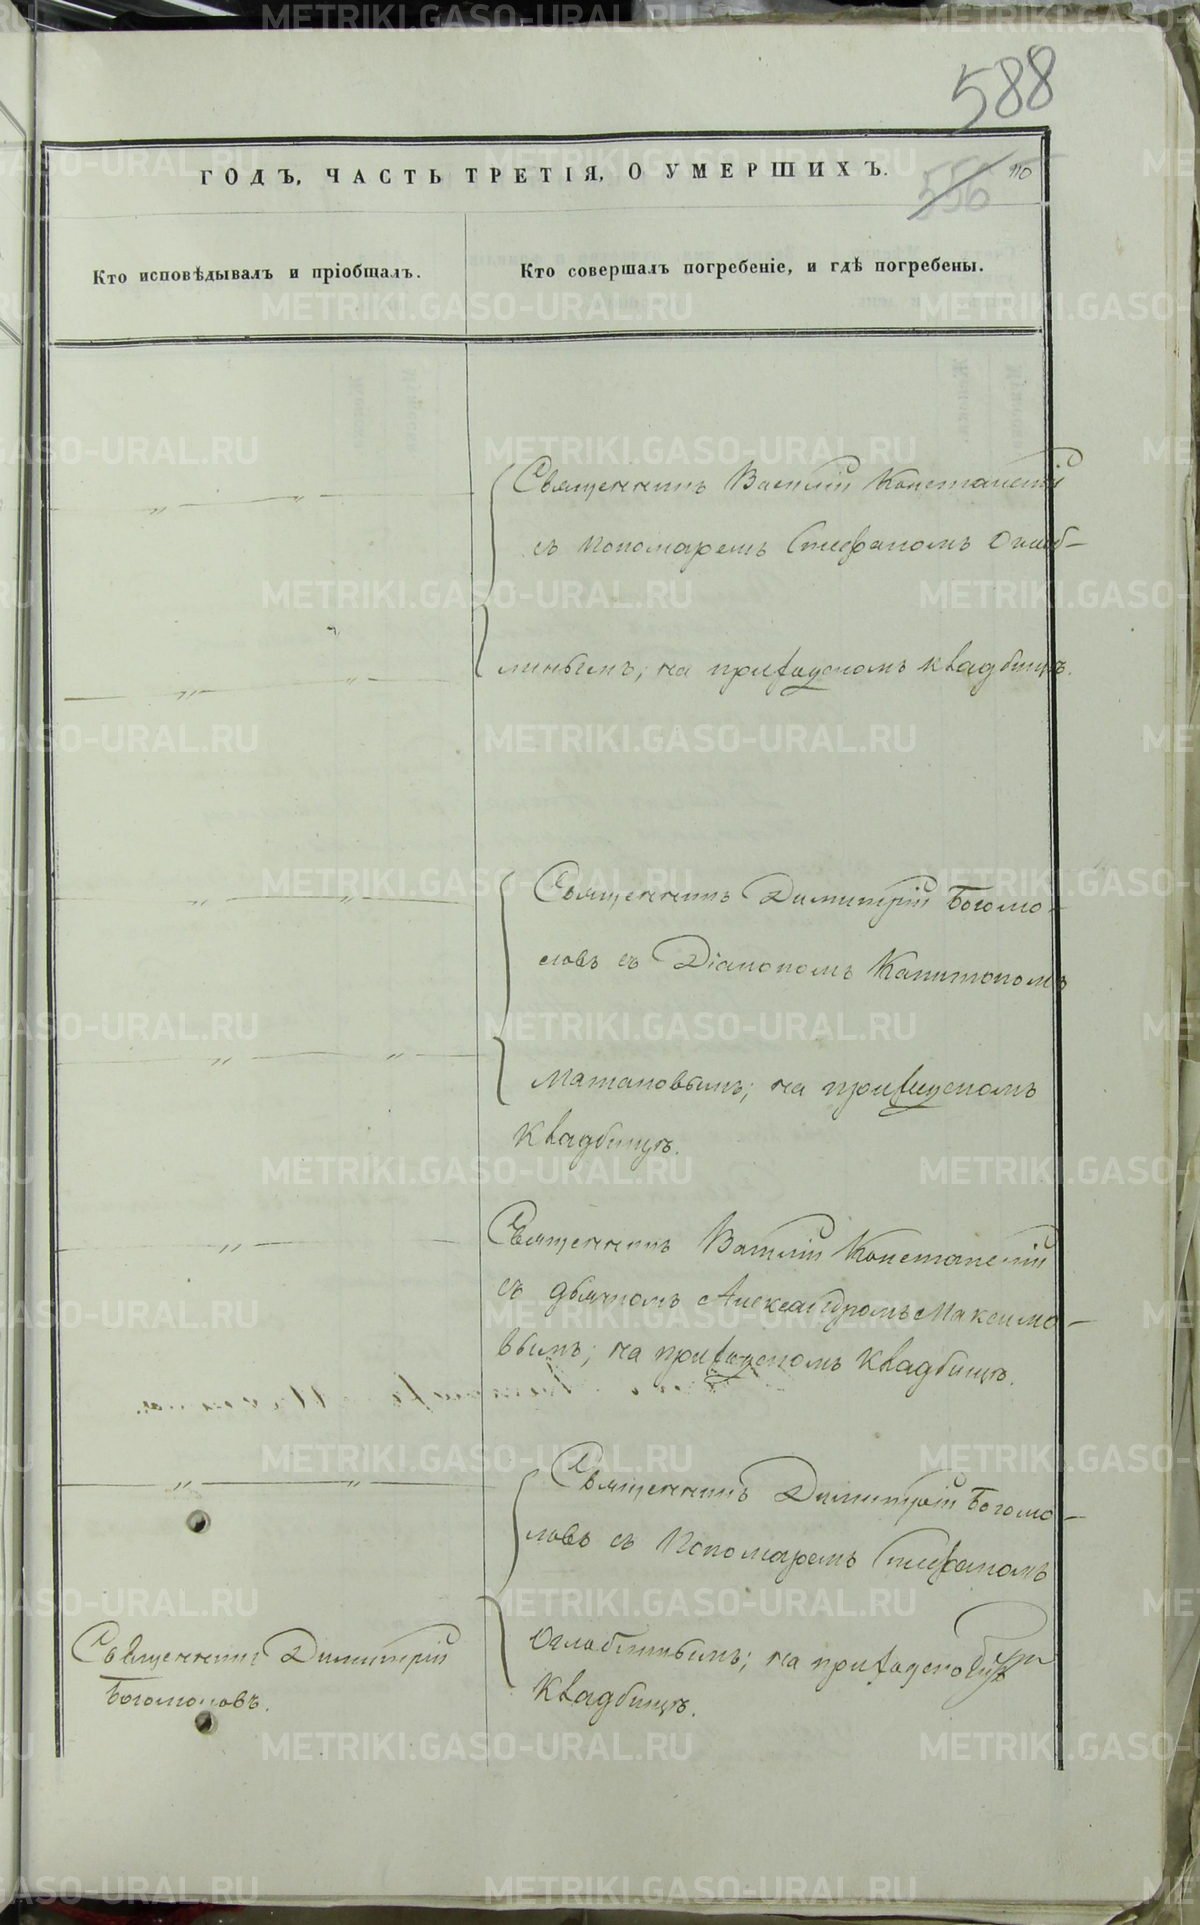 588
ГОДЪ, ЧАСТЬ ТРЕТІЯ, О УМЕРШИХЪ.
556
Кто исповѣдывалъ и пріобщалъ.
Кто совершалъ погребеніе, и гдѣ погребены.
Священникъ Василій Констанскій
съ пономаремъ Стефаномъ Оглоб-
линымъ; на приходскомъ кладбищѣ.
Священникъ Димитрій Богомо-
ловъ съ Діакономъ Капитономъ
на приходскомъ
кладбищѣ.
Священникъ Василій Констанскій
съ дьячкомъ Александромъ Максимо-
вымъ; на приходскомъ кладбищѣ.
Священникъ Димитрій Богомо-
ловъ съ Пономаремъ Стефаномъ
Оглоблинымъ; на приходскомъ
кладбищѣ.
Священникъ Димитрій
Богомоловъ.
METRIKI.GASO-URAL.RU